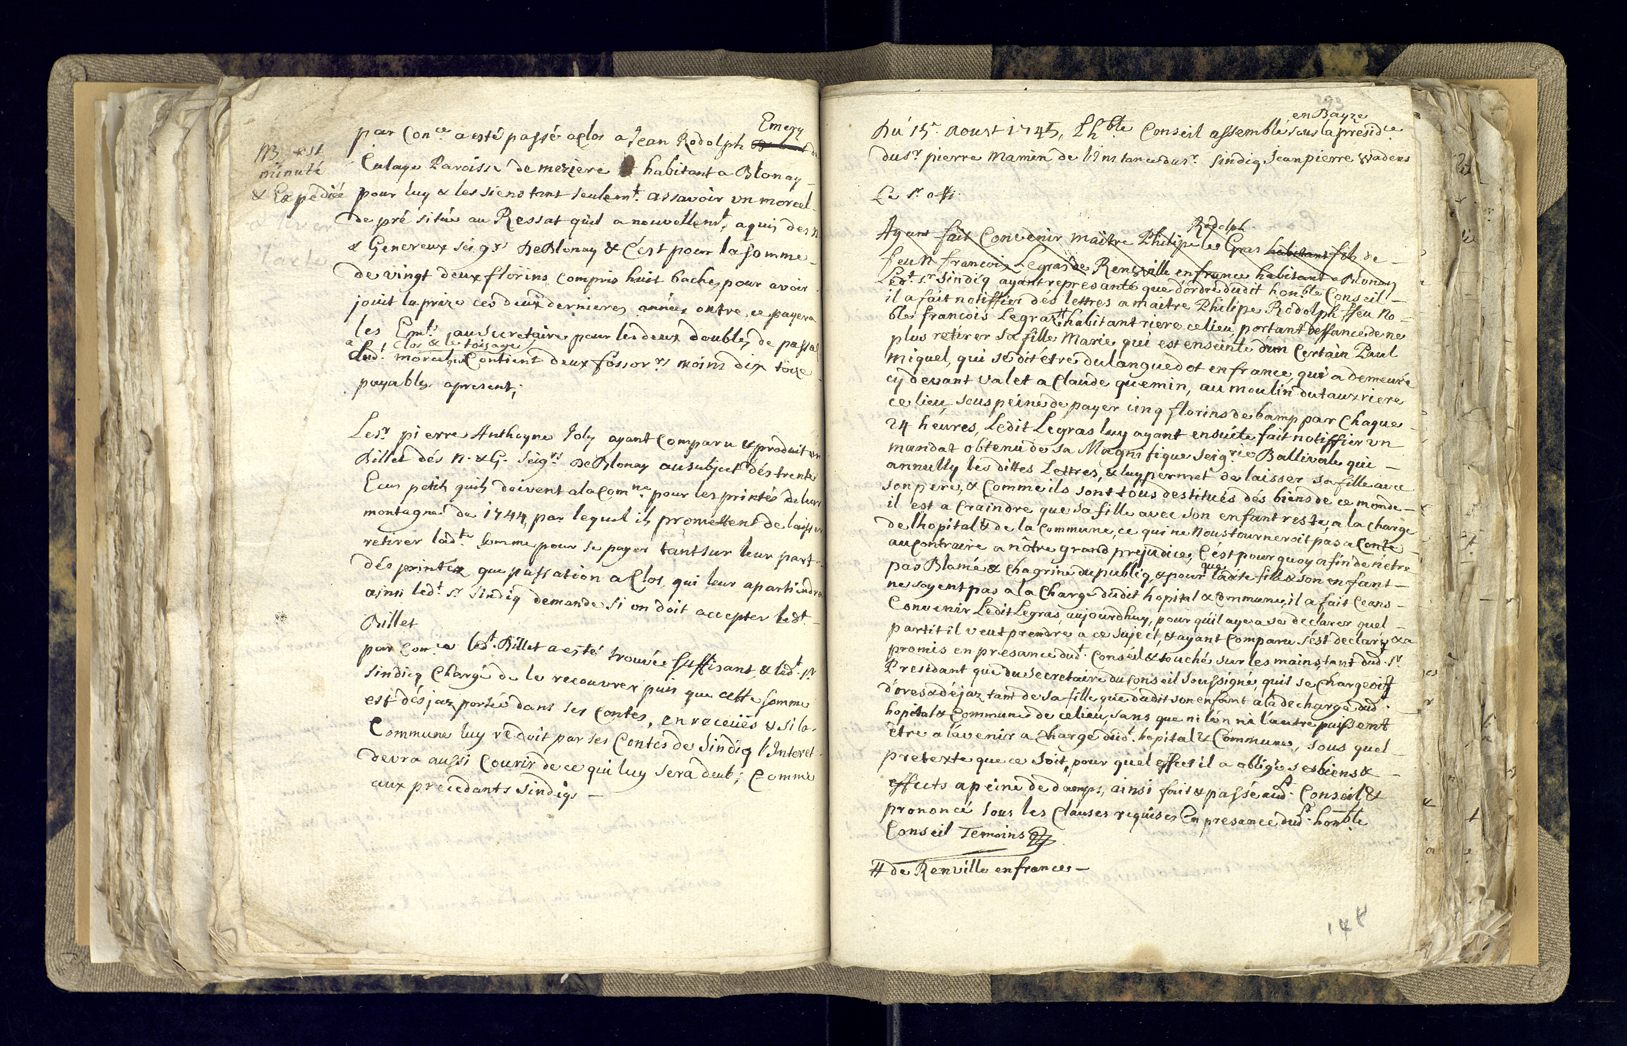 par Con.ce a esté passé a Clos a Jean Rodolph Emery de
NB est
minuté
& Expedíé
Culaye Paroisse de meziere habitant a Blonay
pour luy & les siens tant seulem.t assavoir un morcel
de pré situé au Ressat qu'il a nouvellem.t aquis des N.
& Genereux seig.rs De Blonay & C'est pour la somme
de vingt deux florins compris huit baches pour avoir
jouit la prize ces deux dernieres années, outre ce payera
les Em.ts au Secretaire pour les deux doubles de passa
a Clos & le toisage
Lud.t morcel Contient deux fossor.rs moins dix toise
payables apresent;
Le s.r pierre Anthoyne Joly ayant Comparu & produit un
Billet dés N. & G. Seig.rs De Blonay au subject dés trente
Ecus petits quils doivent a la Com.ne pour les printés de leurs
montagnes de 1744 par lequel ils promettent de laisser
retirer lad.te somme pour se payer tant sur leur part
dés printéx que passation a Clos, qui leur apartiendra
ainsi led.t S.r Sindiq demande si on doit accepter led.t
Billet
par Con.ce led.t Billet a esté trouvée suffisant & led.t S.r
Sindiq Chargé de le recouvrer puis que cette somme
est désjaz portée dans ses Contes, en receües & si la
Commune luy redoit par ses Contes de Sindiq l'Interet
devra aussi Courir de ce qui luy sera deub; Comme
aux precedants Sindiqs
293
en Bayze
Du 15.e Aoust 1745, L'h.ble Conseil assemblé sous la presid.ce
du s.r pierre Mamin de l'instance du s.r Sindiq Jean pierre Wadens
Le S.r off.
Rodolph
Ayant fait Convenir maître Philipe Le Gras habitant fils de
feu N. francois Legras de Renville en france habitant a Blonay
Led.t S.r Sindiq ayant representé que d'ordre dudit honble Conseil
il a fait notiffier dés lettres a maitre Philipe Rodolph ffeu No-
ble francois Legras # habitant riere ce lieu, portant deffance de ne
plus retirer sa fille Marie qui est enseinte d'un Certain Paul
Miquel, qui se dit être du languedot en france, qui a demeuré
cy devant valet a Claude quemin, au moulin dutaux riere
ce lieu, sous peine de payer cinq florins de bamp par Chaque
24 heures, Ledit Legras luy ayant ensuite fait notiffier un
mandat obtenu de sa Magnifique Seig.rie Ballivale qui
annully les dittes Lettres, & luy permet de laisser sa fille avec
son pere, & Comme ils sont tous destitués dés biens de ce monde
il est a Craindre que sa fille avec son enfant reste, a la charge
de lhopital & de la Commune, ce qui ne nous tourneroit pas a Conte
au Contraire a nôtre grand prejudice, C'est pour quoy afin de n'étre
pas Blamé & Chagriné du publiq, & pour que ladite fille & son enfant
ne soyent pas a la Charge dudit hopital & Commune, il a fait Ceans
Convenir Ledit Legras aujourdhuy, pour quil aye a se déclarer quel
partit il veut prendre a ce suject, & ayant Comparu s'est declaré & a
promis en presance dud.t Conseil & touché sur les mains tant dud.t S.r
Presidant que du Secretaire du Conseil soussigné, quil se Chargeoit
d'ores & déjaz tant de sa fille que dudit son enfant a la decharge dud.t
hopital & Commune de ce lieu, sans que ni l'un ne l'autre puissent
être a l'avenir a charge dud.t hopital & Commune, sous quel
pretexte que ce soit, pour quel effect il a obligé ses biens &
effects a peine de damps, ainsi fait & passé aud.t Conseil &
prononcé sous les Clauses requises en presance dud.t honble
Conseil Temoins
# de Renville en france
148